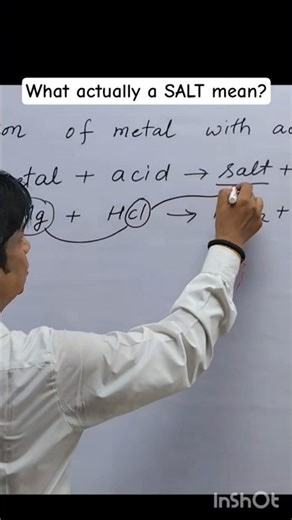 What actually a SALT mean?
of metal with
+ acid → salt +
+ HCl → +
InShOt